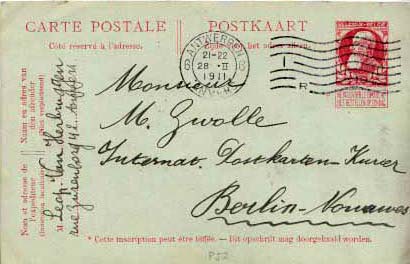 CARTE POSTALE
POSTKAART
Côté réservé à l'adresse.
Zijde voor het adres alleen.
ANTWERPEN
21-22
28 II
1911
ANVERS
6
Monsieur
M. Zwolle
Internat. Postkarten-Kurier
Berlin-Nowawes
Naam en adres van
den afzender
Nom et adresse de
l'expéditeur
M
Leop. Van Herbruggen
rue Zurenborg 42. Anvers
* Cette inscription peut être biffée. — Dit opschrift mag doorgehaald worden.
P52